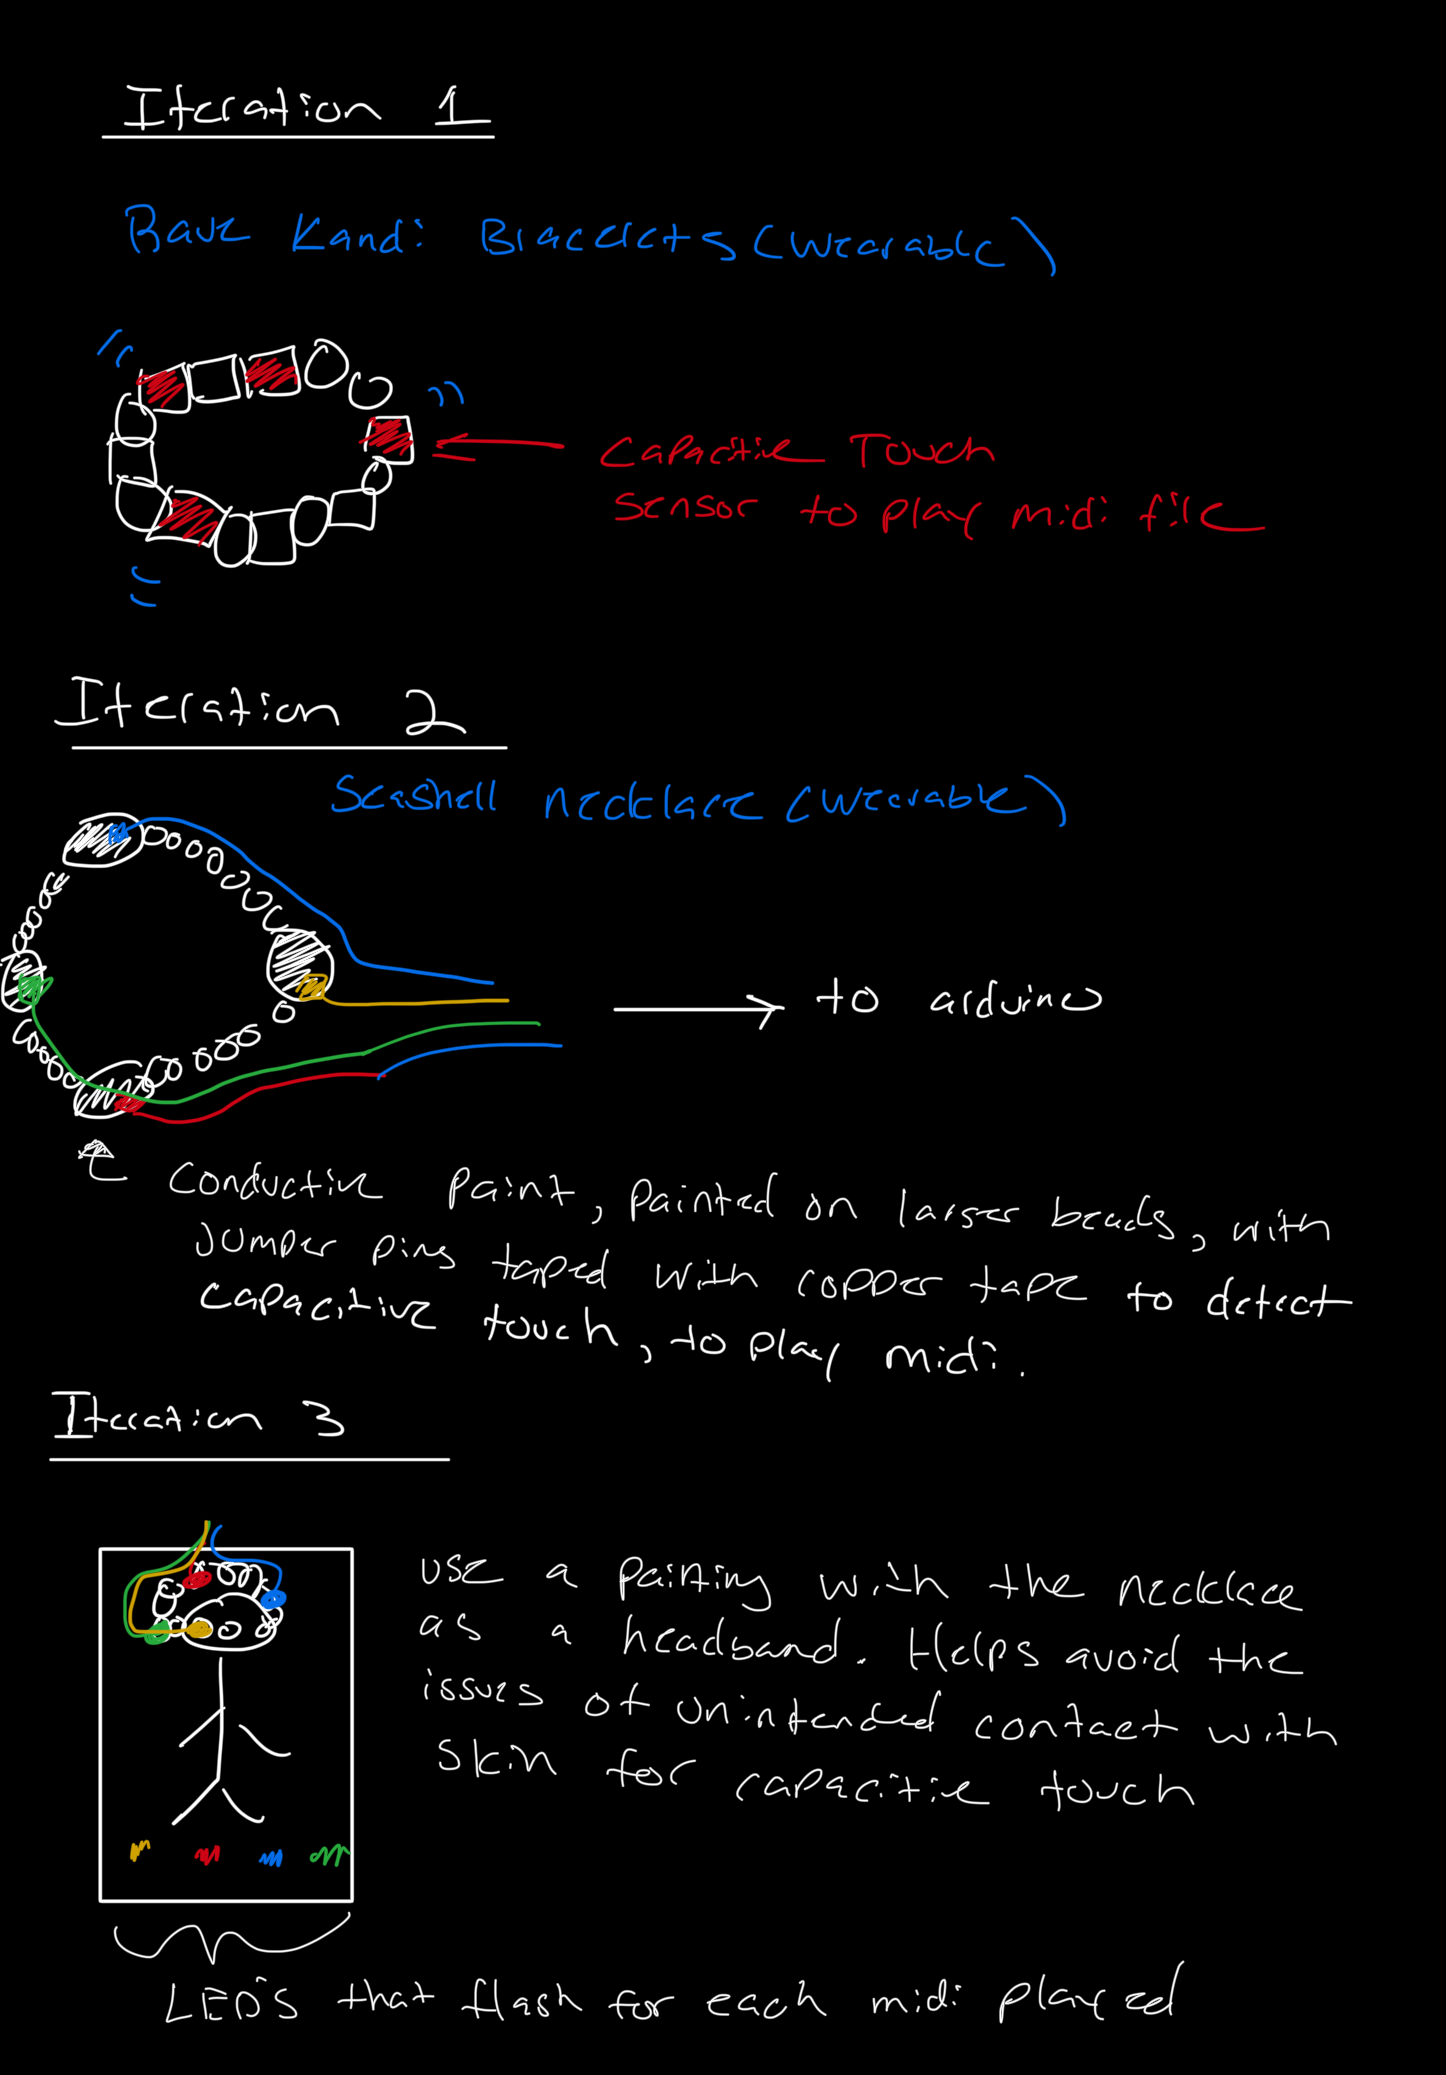 Iteration 1
Rave Kandi Bracelets (wearable)
capacitie Touch
sensor to play midi file
Iteration 2
Seashell necklace (wearable)
to arduino
conductive paint, painted on larger beads, with
jumper pins taped with copper tape to detect
capacitive touch, to play midi.
Iteration 3
use a painting with the necklace
as a headband. Helps avoid the
issues of unintended contact with
skin for capacitie touch
LED's that flash for each midi played